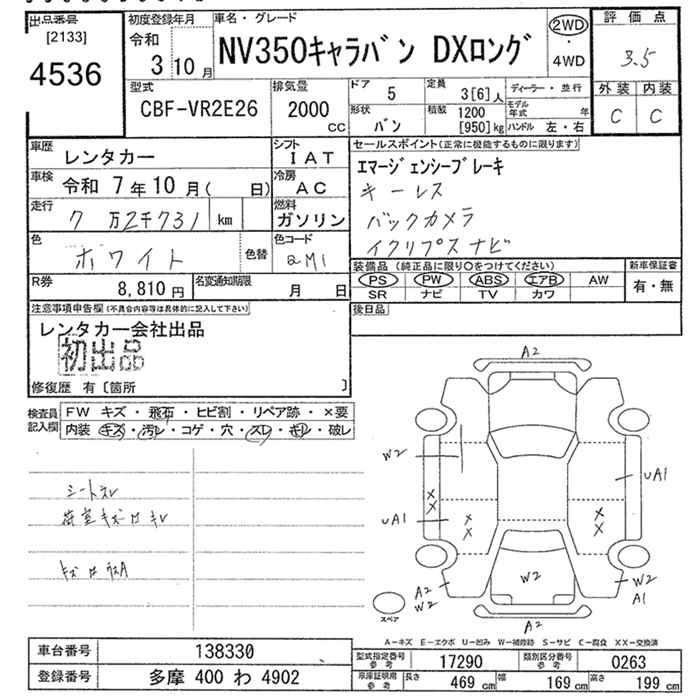 出品番号
[2133]
4536
初度登録年月
令和
3年10月
車名・グレード
NV350キャラバン DXロング
2WD
・
4WD
評価点
3.5
外装 内装
C C
型式
CBF-VR2E26
排気量
2000
CC
ドア
5
定員
3[6]人
ディーラー・並行
形状
バン
積載
1200
[950]kg
モデル年式 年
ハンドル 左・右
車歴
レンタカー
シフト
IAT
車検
令和 7年10月( 日)
冷房
AC
走行
7万2千731 km
燃料
ガソリン
色
ホワイト
色替
色コード
QM1
R券
8,810円
名変通知期限
月 日
セールスポイント(正常に機能するものに限ります)
エマージェンシーブレーキ
キーレス
バックカメラ
イクリプスナビ
装備品(純正品に限り○をつけてください)
PS PW ABS エアB AW
SR ナビ TV カワ
新車保証書
有・無
後日品
注意事項申告欄(不具合内容等は具体的に記入して下さい)
レンタカー会社出品
初出品
修復歴 有〔箇所 〕
検査員記入欄
FW キズ・飛石・ヒビ割・リペア跡・×要
内装 キズ・汚レ・コゲ・穴・スレ・キレ・破レ
荷室キズロキレ
A2
W2
UA1
UA1
W2
A2
W2
W2
A1
A2
スペア
A-キズ E-エクボ U-凹み W-補修跡 S-サビ C-腐食 XX-交換済
車台番号
138330
登録番号
多摩 400 わ 4902
型式指定番号
参考
17290
類別区分番号
参考
0263
車庫証明用
参考
長さ 469 cm 幅 169 cm 高さ 199 cm